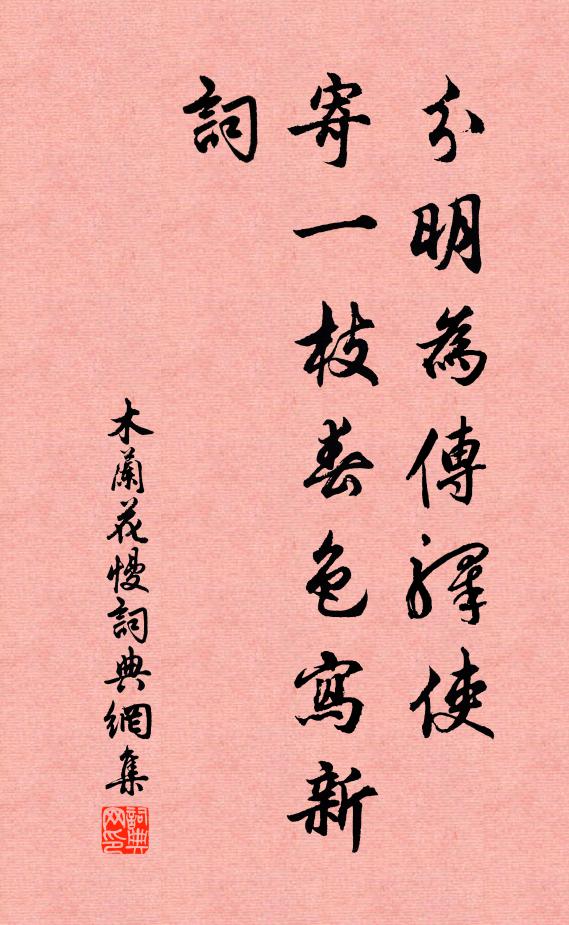 分明為傳驛使
寄一枝春色寫新
詞
木蘭花慢詞典網集
詞典网印